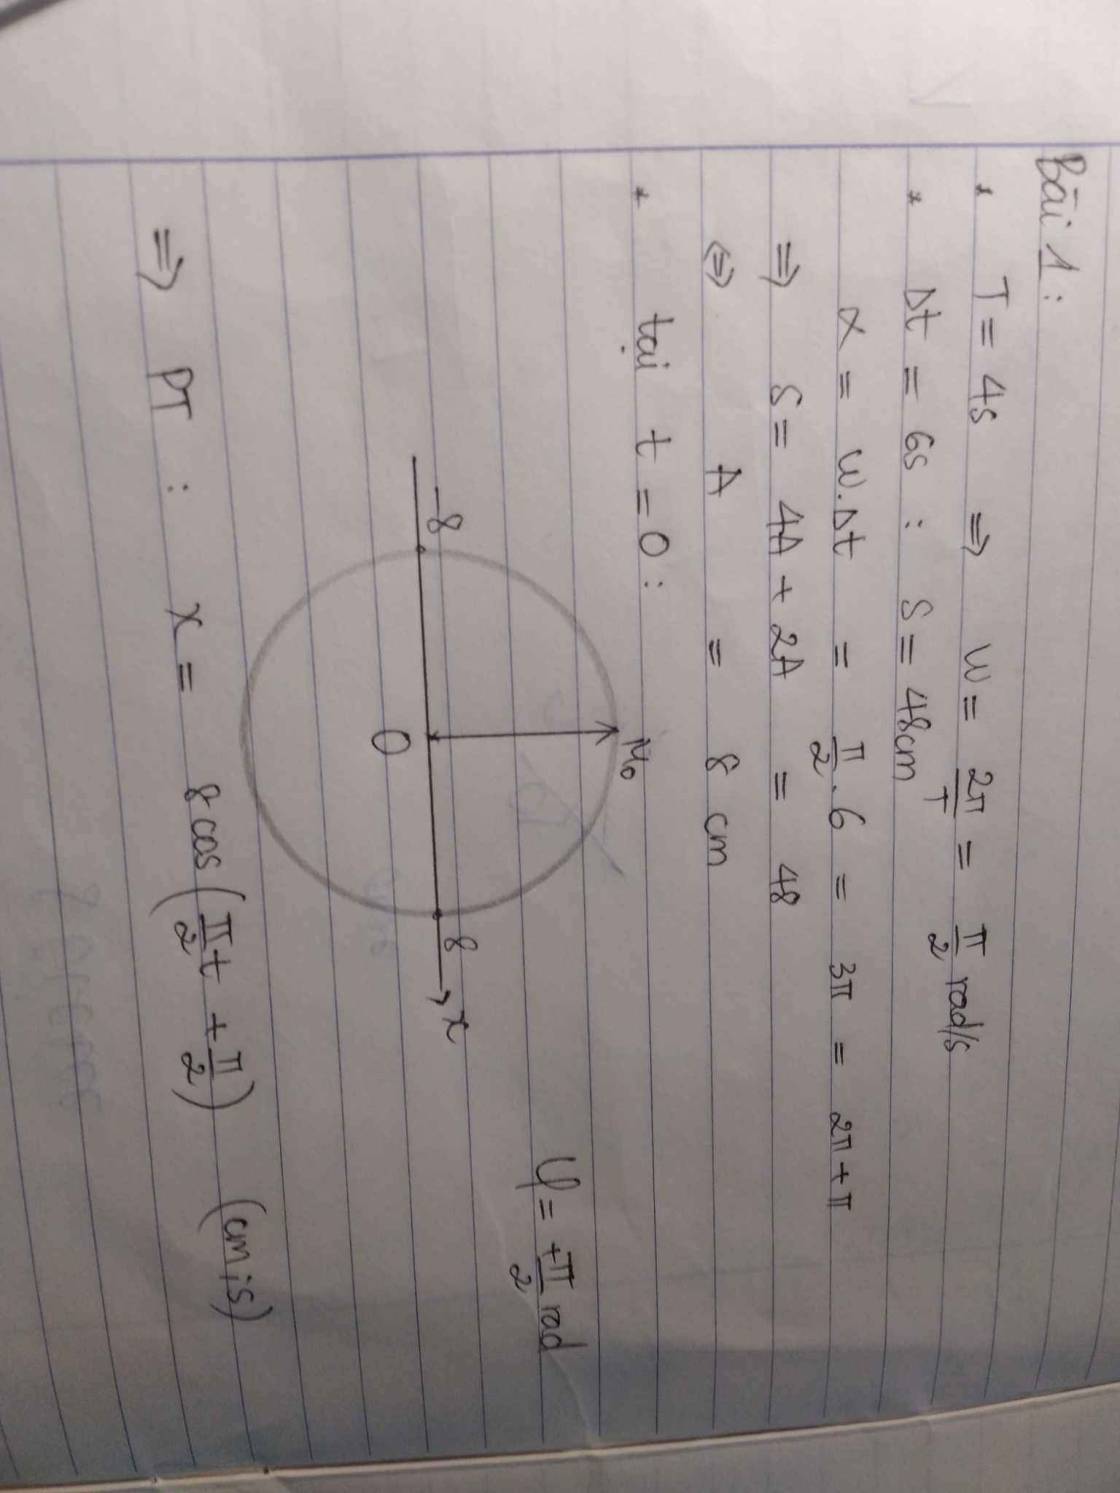 Bài 1:
* T = 4s ⇒ ω = 2π/T = π/2 rad/s
* Δt = 6s : S = 48cm
α = ω.Δt = π/2 . 6 = 3π = 2π + π
⇒ S = 4A + 2A = 48
⇔ A = 8 cm
* tại t = 0 :
M₀
φ = +π/2 rad
-8 8 x
O
⇒ PT : x = 8 cos(π/2 t + π/2) (cm;s)